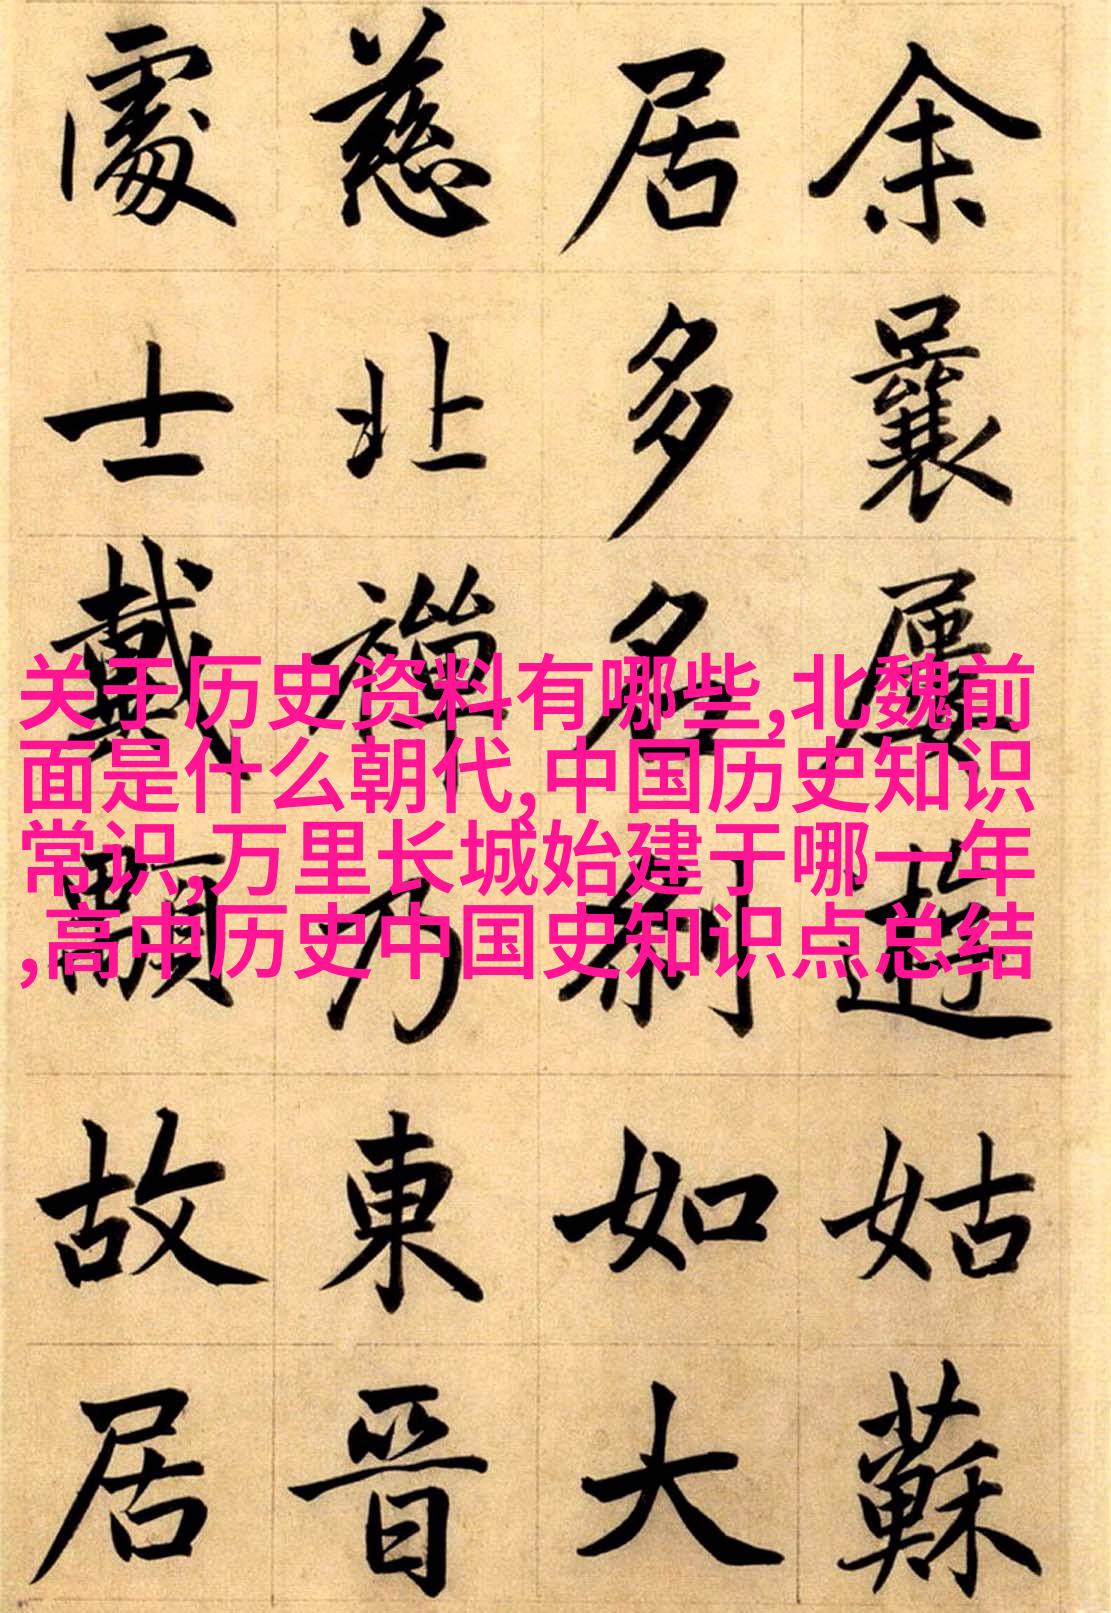 余曩屢遊姑蘇
居多名刹如大
慈北禪乃東晉
處士戴顒故居
关于历史资料有哪些,北魏前
面是什么朝代,中国历史知识
常识,万里长城始建于哪一年
,高中历史中国史知识点总结